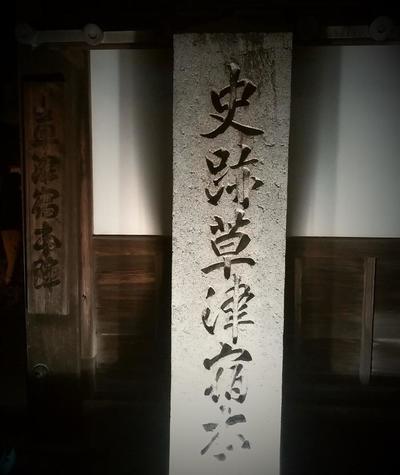 史跡草津宿本
草津宿本陣